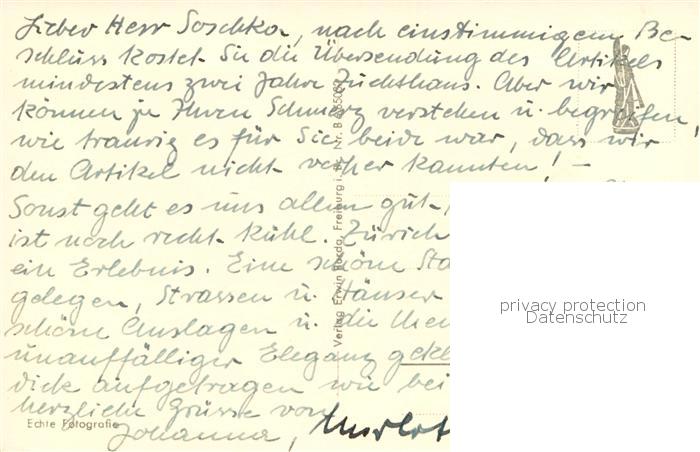 Lieber Herr Soschka, nach einstimmigem Be-
schluss kostet Sie die Übersendung des Artikels
mindestens zwei Jahre Zuchthaus. Aber wir
können ja Ihren Schmerz verstehen u. begreifen,
wie traurig es für Sie beide war, dass wir
den Artikel nicht vorher kannten! –
Sonst geht es uns allen gut,
ist noch recht kühl. Zürich
ein Erlebnis. Eine schöne Sta
gelegen, Strassen u. Häuser
schöne Auslagen u. die
unauffälliger Eleganz gekl
dick aufgetragen wie bei
herzliche Grüsse von
Johanna,
Echte Fotografie
Verlag Erwin Burda, Freiburg i. Br.
privacy protection
Datenschutz